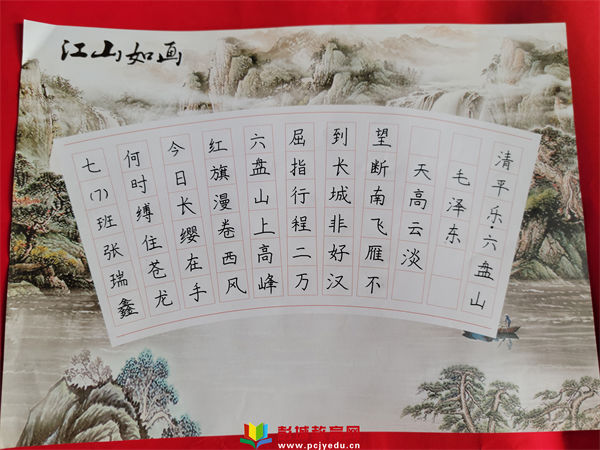 江山如画
清平乐·六盘山
毛泽东
天高云淡
望断南飞雁不
到长城非好汉
屈指行程二万
六盘山上高峰
红旗漫卷西风
今日长缨在手
何时缚住苍龙
七(7)班张瑞鑫
彭城教育网
www.pcjyedu.cn